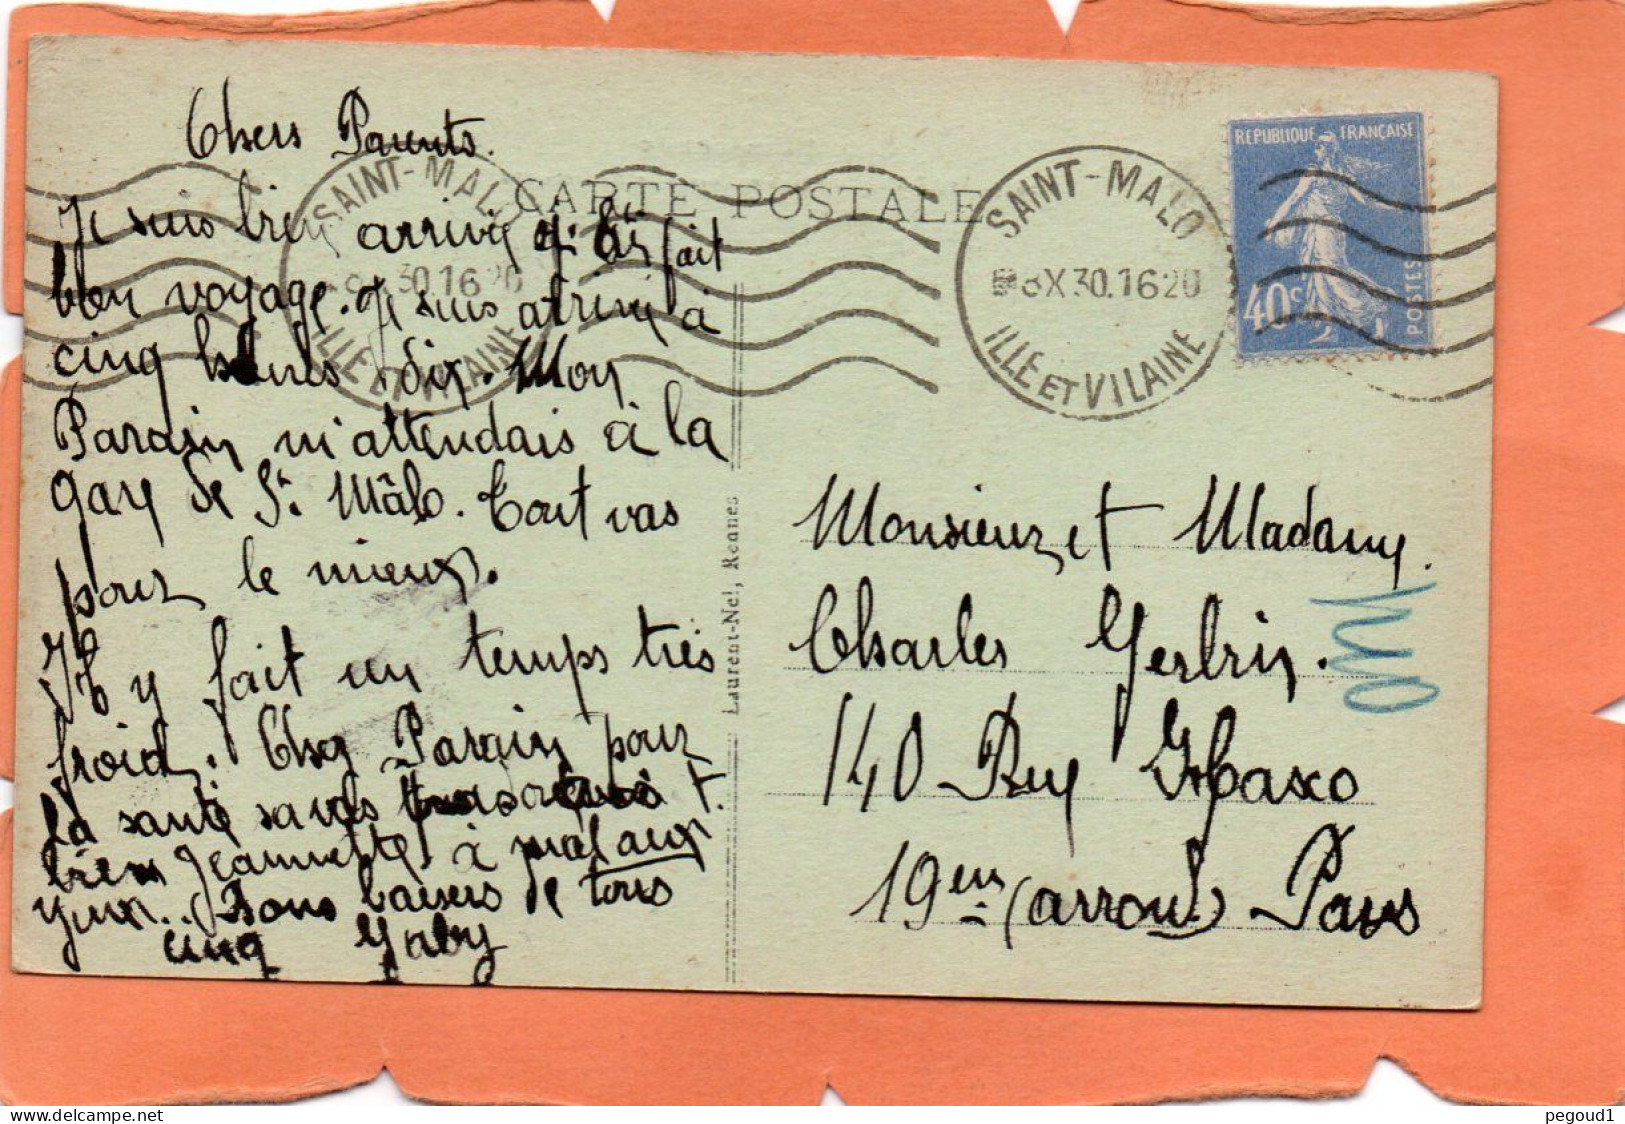 Chers Parents.
Je suis bien arrivé et j'ai fait
bon voyage. Je suis arrivé à
cinq heures dix. Mon
Parain m'attendais à la
gare de St. Mâlo. Tout vas
pour le mieux.
Il y fait un temps très
froid. Chez Parain pour
la santé sa vas
bien Jeannette à mal aux
yeux.. Bons baisers de tous
cinq Gaby
CARTE POSTALE
SAINT-MALO
30.16
ILLE ET VILAINE
Laurent-Nel, Rennes
SAINT-MALO
8X30.1620
ILLE ET VILAINE
REPUBLIQUE FRANÇAISE
40c
POSTES
Monsieur et Madame
Charles Gerbrin.
140 Rue
19em (arrond) Paris
pegoud1